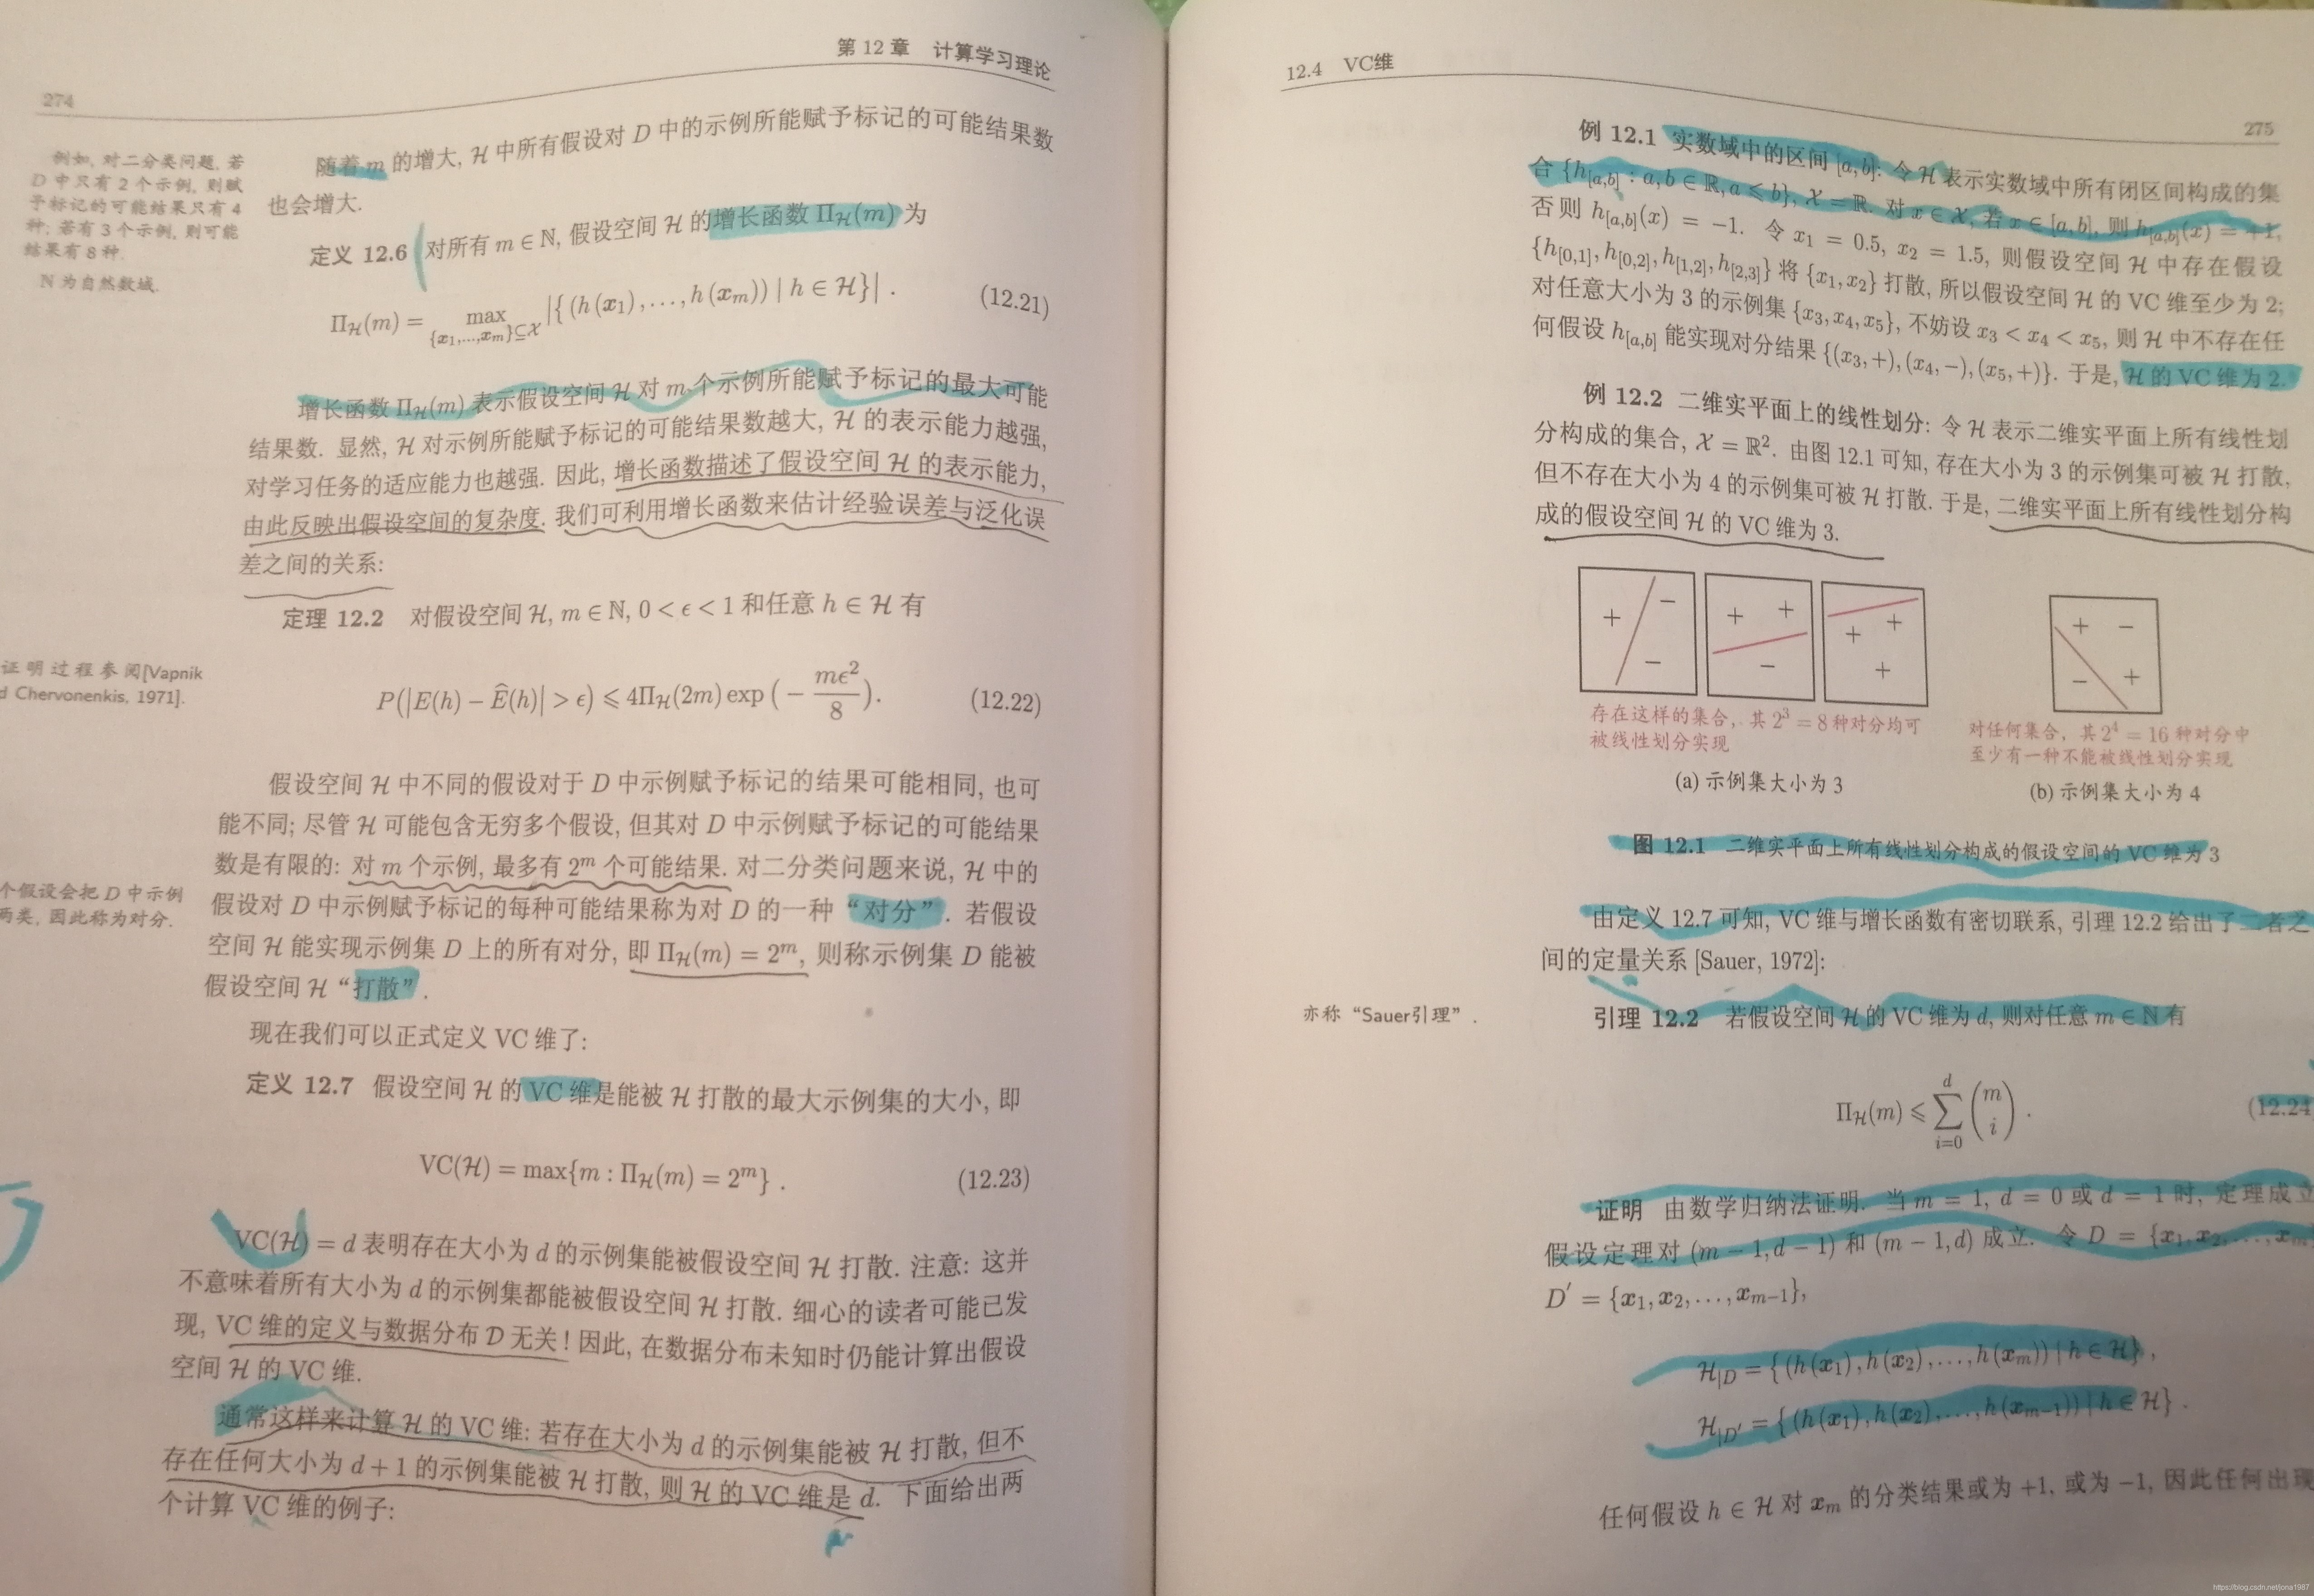 第 12 章 计算学习理论
274
例如, 对二分类问题, 若
D 中只有 2 个示例, 则赋
予标记的可能结果只有 4
种; 若有 3 个示例, 则可能
结果有 8 种.
ℕ 为自然数域.
随着 m 的增大, ℋ 中所有假设对 D 中的示例所能赋予标记的可能结果数
也会增大.
定义 12.6 对所有 m ∈ ℕ, 假设空间 ℋ 的增长函数 Π_ℋ(m) 为
Π_ℋ(m) = max_{{x₁,...,x_m}⊆𝒳} |{(h(x₁),...,h(x_m)) | h ∈ ℋ}| . (12.21)
增长函数 Π_ℋ(m) 表示假设空间 ℋ 对 m 个示例所能赋予标记的最大可能
结果数. 显然, ℋ 对示例所能赋予标记的可能结果数越大, ℋ 的表示能力越强,
对学习任务的适应能力也越强. 因此, 增长函数描述了假设空间 ℋ 的表示能力,
由此反映出假设空间的复杂度. 我们可利用增长函数来估计经验误差与泛化误
差之间的关系:
定理 12.2 对假设空间 ℋ, m ∈ ℕ, 0 < ϵ < 1 和任意 h ∈ ℋ 有
证明过程参阅[Vapnik
d Chervonenkis, 1971].
P(|E(h) − Ê(h)| > ϵ) ⩽ 4Π_ℋ(2m) exp(−mϵ²/8). (12.22)
假设空间 ℋ 中不同的假设对于 D 中示例赋予标记的结果可能相同, 也可
能不同; 尽管 ℋ 可能包含无穷多个假设, 但其对 D 中示例赋予标记的可能结果
数是有限的: 对 m 个示例, 最多有 2ᵐ 个可能结果. 对二分类问题来说, ℋ 中的
个假设会把 D 中示例
两类, 因此称为对分.
假设对 D 中示例赋予标记的每种可能结果称为对 D 的一种 “对分”. 若假设
空间 ℋ 能实现示例集 D 上的所有对分, 即 Π_ℋ(m) = 2ᵐ, 则称示例集 D 能被
假设空间 ℋ “打散”.
现在我们可以正式定义 VC 维了:
定义 12.7 假设空间 ℋ 的 VC 维是能被 ℋ 打散的最大示例集的大小, 即
VC(ℋ) = max{m : Π_ℋ(m) = 2ᵐ} . (12.23)
VC(ℋ) = d 表明存在大小为 d 的示例集能被假设空间 ℋ 打散. 注意: 这并
不意味着所有大小为 d 的示例集都能被假设空间 ℋ 打散. 细心的读者可能已发
现, VC 维的定义与数据分布 𝒟 无关! 因此, 在数据分布未知时仍能计算出假设
空间 ℋ 的 VC 维.
通常这样来计算 ℋ 的 VC 维: 若存在大小为 d 的示例集能被 ℋ 打散, 但不
存在任何大小为 d+1 的示例集能被 ℋ 打散, 则 ℋ 的 VC 维是 d. 下面给出两
个计算 VC 维的例子:
12.4 VC维
275
例 12.1 实数域中的区间 [a,b]: 令 ℋ 表示实数域中所有闭区间构成的集
合 {h_[a,b] : a,b ∈ ℝ, a ⩽ b}, 𝒳 = ℝ. 对 x ∈ 𝒳, 若 x ∈ [a,b], 则 h_[a,b](x) = +1,
否则 h_[a,b](x) = −1. 令 x₁ = 0.5, x₂ = 1.5, 则假设空间 ℋ 中存在假设
{h_[0,1], h_[0,2], h_[1,2], h_[2,3]} 将 {x₁,x₂} 打散, 所以假设空间 ℋ 的 VC 维至少为 2;
对任意大小为 3 的示例集 {x₃,x₄,x₅}, 不妨设 x₃ < x₄ < x₅, 则 ℋ 中不存在任
何假设 h_[a,b] 能实现对分结果 {(x₃,+),(x₄,−),(x₅,+)}. 于是, ℋ 的 VC 维为 2.
例 12.2 二维实平面上的线性划分: 令 ℋ 表示二维实平面上所有线性划
分构成的集合, 𝒳 = ℝ². 由图 12.1 可知, 存在大小为 3 的示例集可被 ℋ 打散,
但不存在大小为 4 的示例集可被 ℋ 打散. 于是, 二维实平面上所有线性划分构
成的假设空间 ℋ 的 VC 维为 3.
+ − −
+ + −
+ + +
+ − − +
存在这样的集合, 其 2³ = 8 种对分均可
被线性划分实现
(a) 示例集大小为 3
对任何集合, 其 2⁴ = 16 种对分中
至少有一种不能被线性划分实现
(b) 示例集大小为 4
图 12.1 二维实平面上所有线性划分构成的假设空间的 VC 维为 3
由定义 12.7 可知, VC 维与增长函数有密切联系, 引理 12.2 给出了二者之
间的定量关系 [Sauer, 1972]:
亦称 “Sauer引理”.
引理 12.2 若假设空间 ℋ 的 VC 维为 d, 则对任意 m ∈ ℕ 有
Π_ℋ(m) ⩽ ∑_{i=0}^{d} (m i) . (12.24
证明 由数学归纳法证明. 当 m = 1, d = 0 或 d = 1 时, 定理成立
假设定理对 (m − 1, d − 1) 和 (m − 1, d) 成立. 令 D = {x₁,x₂,...,x_m
D′ = {x₁,x₂,...,x_{m−1}},
ℋ_|D = {(h(x₁),h(x₂),...,h(x_m)) | h ∈ ℋ} ,
ℋ_|D′ = {(h(x₁),h(x₂),...,h(x_{m−1})) | h ∈ ℋ} .
任何假设 h ∈ ℋ 对 x_m 的分类结果或为 +1, 或为 −1, 因此任何出现
https://blog.csdn.net/jona1987